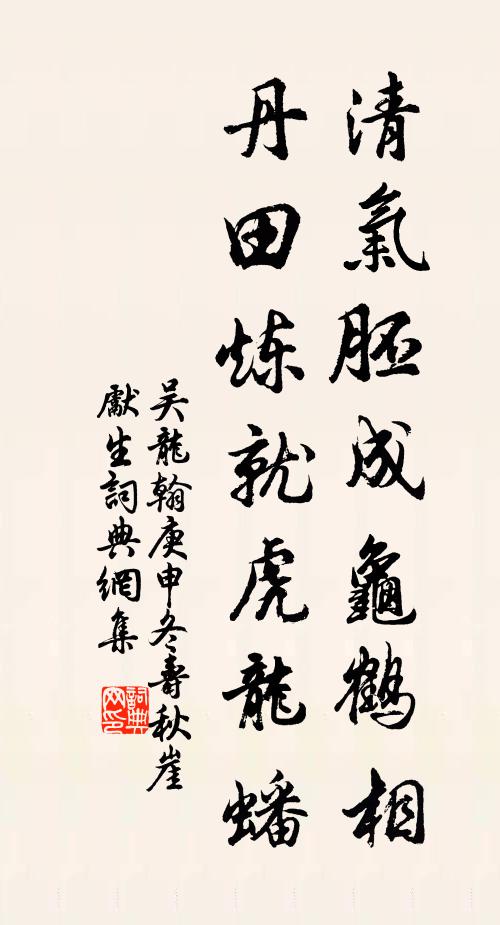 清氣胚成龜鶴相
丹田炼就虎龍蟠
吴龍翰庚申冬壽秋崖
獻生詞典網集
詞典
网印